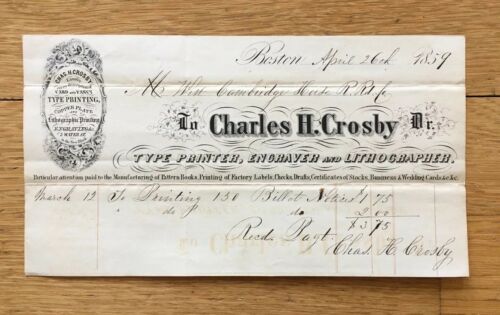 CHAS. H. CROSBY
CARD AND FANCY
TYPE PRINTING,
COPPER PLATE
AND
Lithographic Printing
ENGRAVING &c.
WATER ST.
Boston April 26th 1859
M West Cambridge Horse R. Rd Co
To Charles H. Crosby Dr.
TYPE PRINTER, ENGRAVER AND LITHOGRAPHER.
Particular attention paid to the Manufacturing of Pattern Books, Printing of Factory Labels, Checks, Drafts, Certificates of Stocks, Business & Wedding Cards &c. &c.
March 12 To Printing 150 Notices 1 75
do do 2 00
$3 75
Recd. Payt.
Chas. H. Crosby